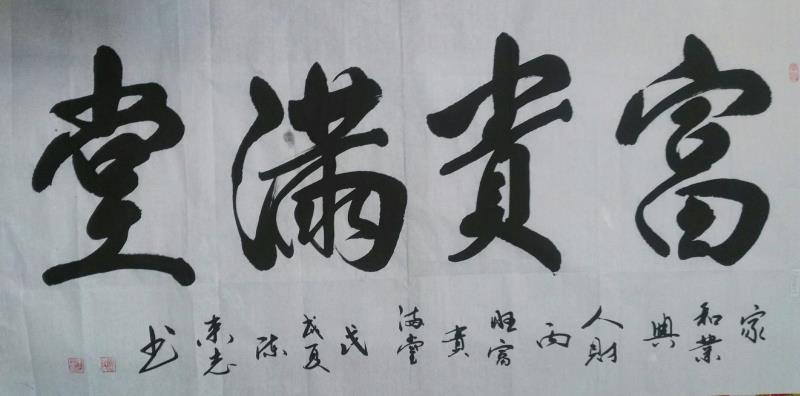 富貴滿堂
家和業興人財兩旺富貴滿堂戊戌夏陳東志书